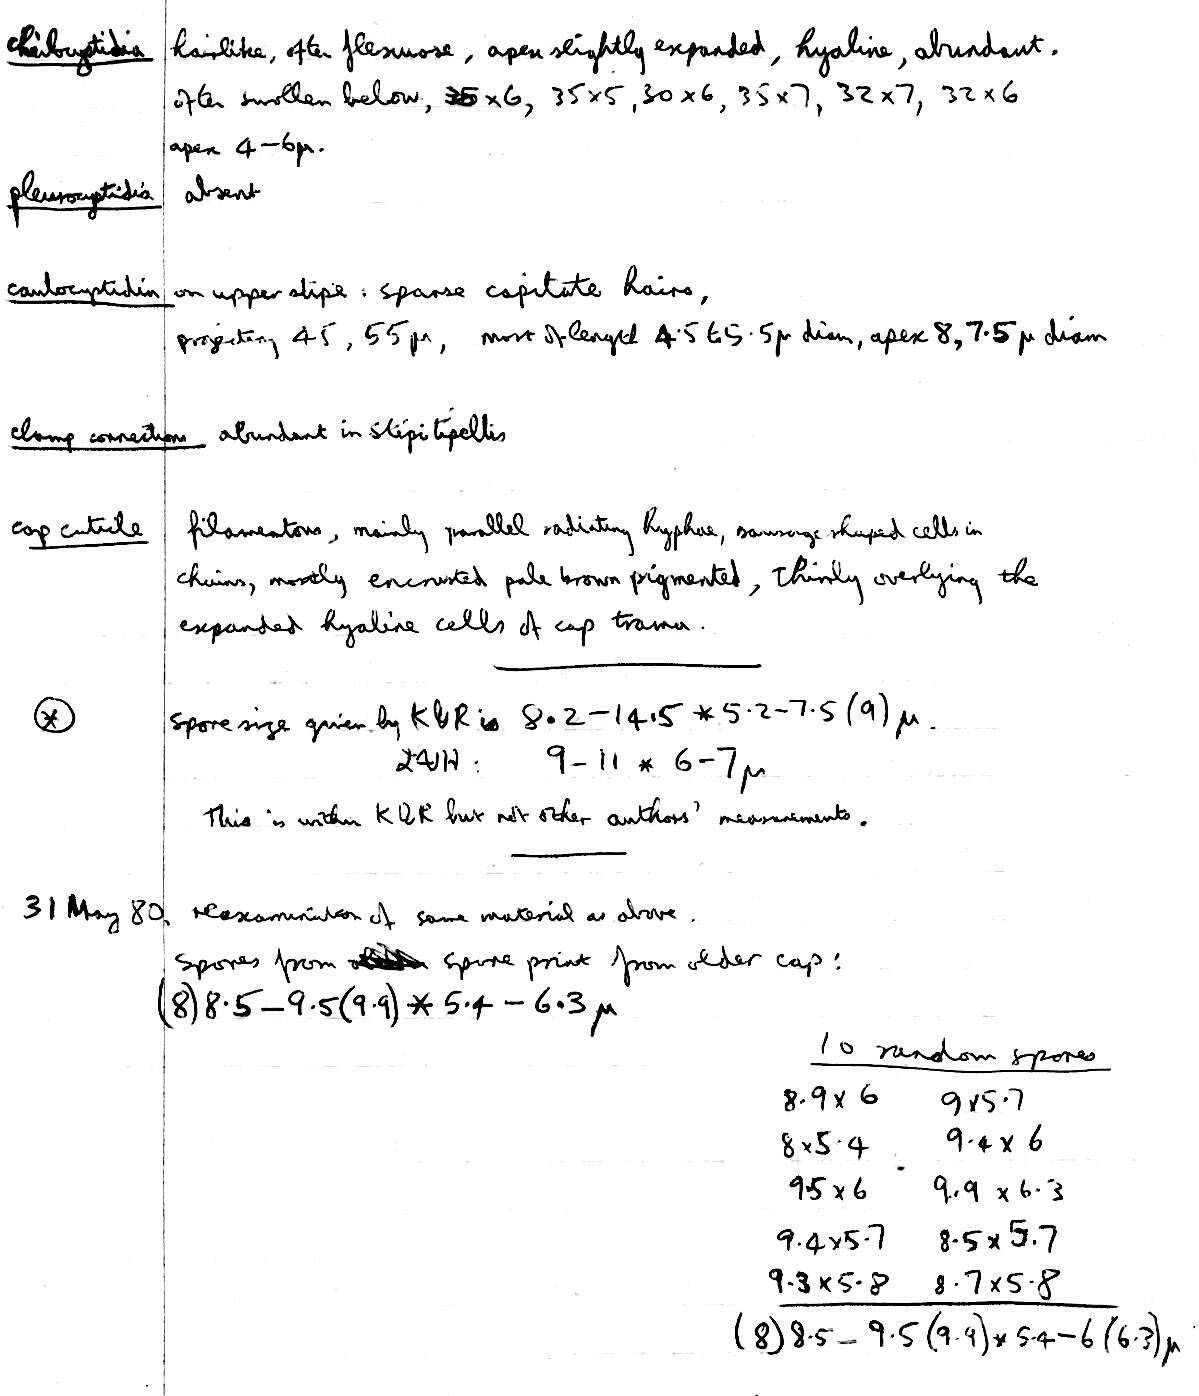 cheilocystidia hairlike, often flexuose, apex slightly expanded, hyaline, abundant.
often swollen below, 35×6, 35×5, 30×6, 35×7, 32×7, 32×6
apex 4–6μ.
pleurocystidia absent
caulocystidia on upper stipe: sparse capitate hairs,
projecting 45, 55μ, most of length 4.5 to 5.5μ diam, apex 8, 7.5μ diam
clamp connections abundant in stipitipellis
cap cuticle filamentous, mainly parallel radiating hyphae, sausage shaped cells in
chains, mostly encrusted pale brown pigmented, thinly overlying the
expanded hyaline cells of cap trama.
* spore size given by K&R is 8.2–14.5 * 5.2–7.5(9)μ.
9–11 * 6–7μ
This is within K&R but not other authors' measurements.
31 May 80. reexamination of same material as above.
Spores from spore print from older cap:
(8)8.5–9.5(9.9)*5.4–6.3μ
10 random spores
8.9×6 9×5.7
8×5.4 9.4×6
95×6 9.9×6.3
9.4×5.7 8.5×5.7
9.3×5.8 8.7×5.8
(8)8.5–9.5(9.9)*5.4–6(6.3)μ